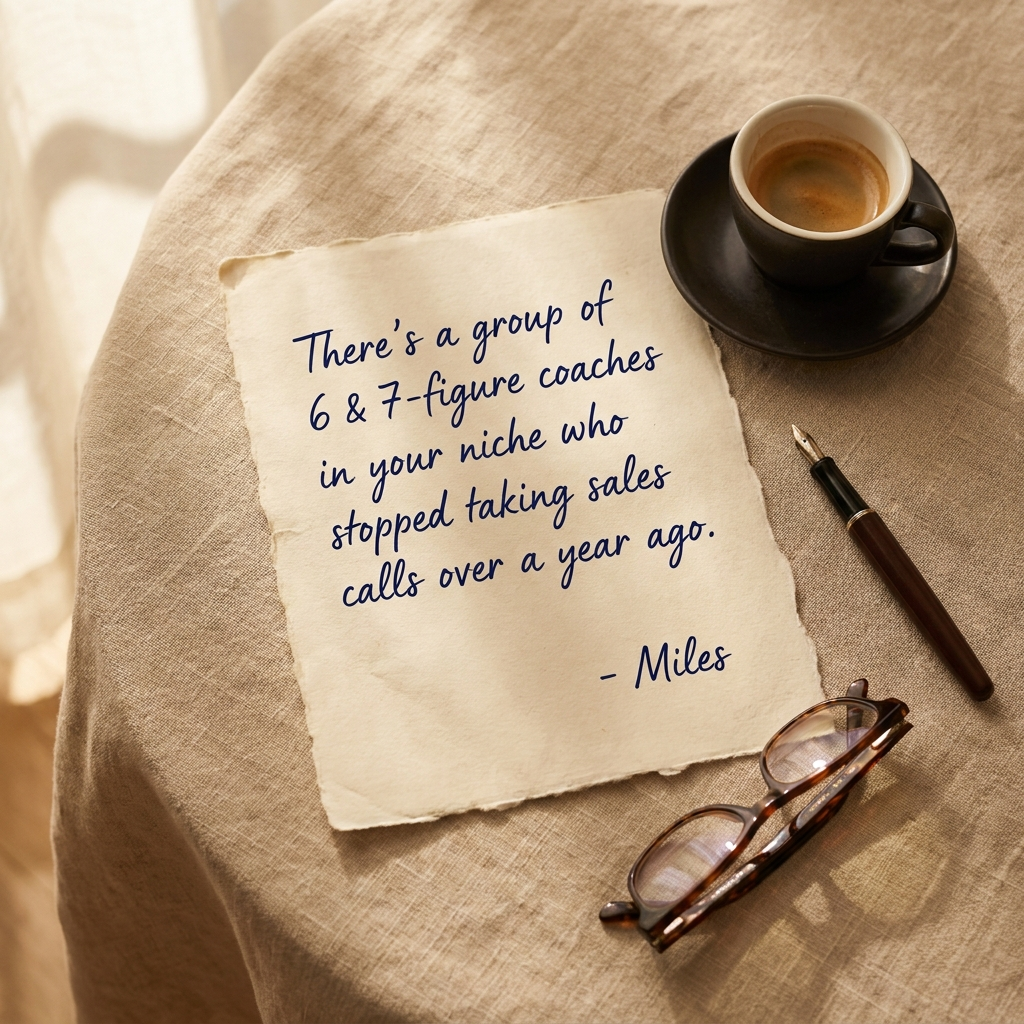 There's a group of
6 & 7-figure coaches
in your niche who
stopped taking sales
calls over a year ago.
- Miles